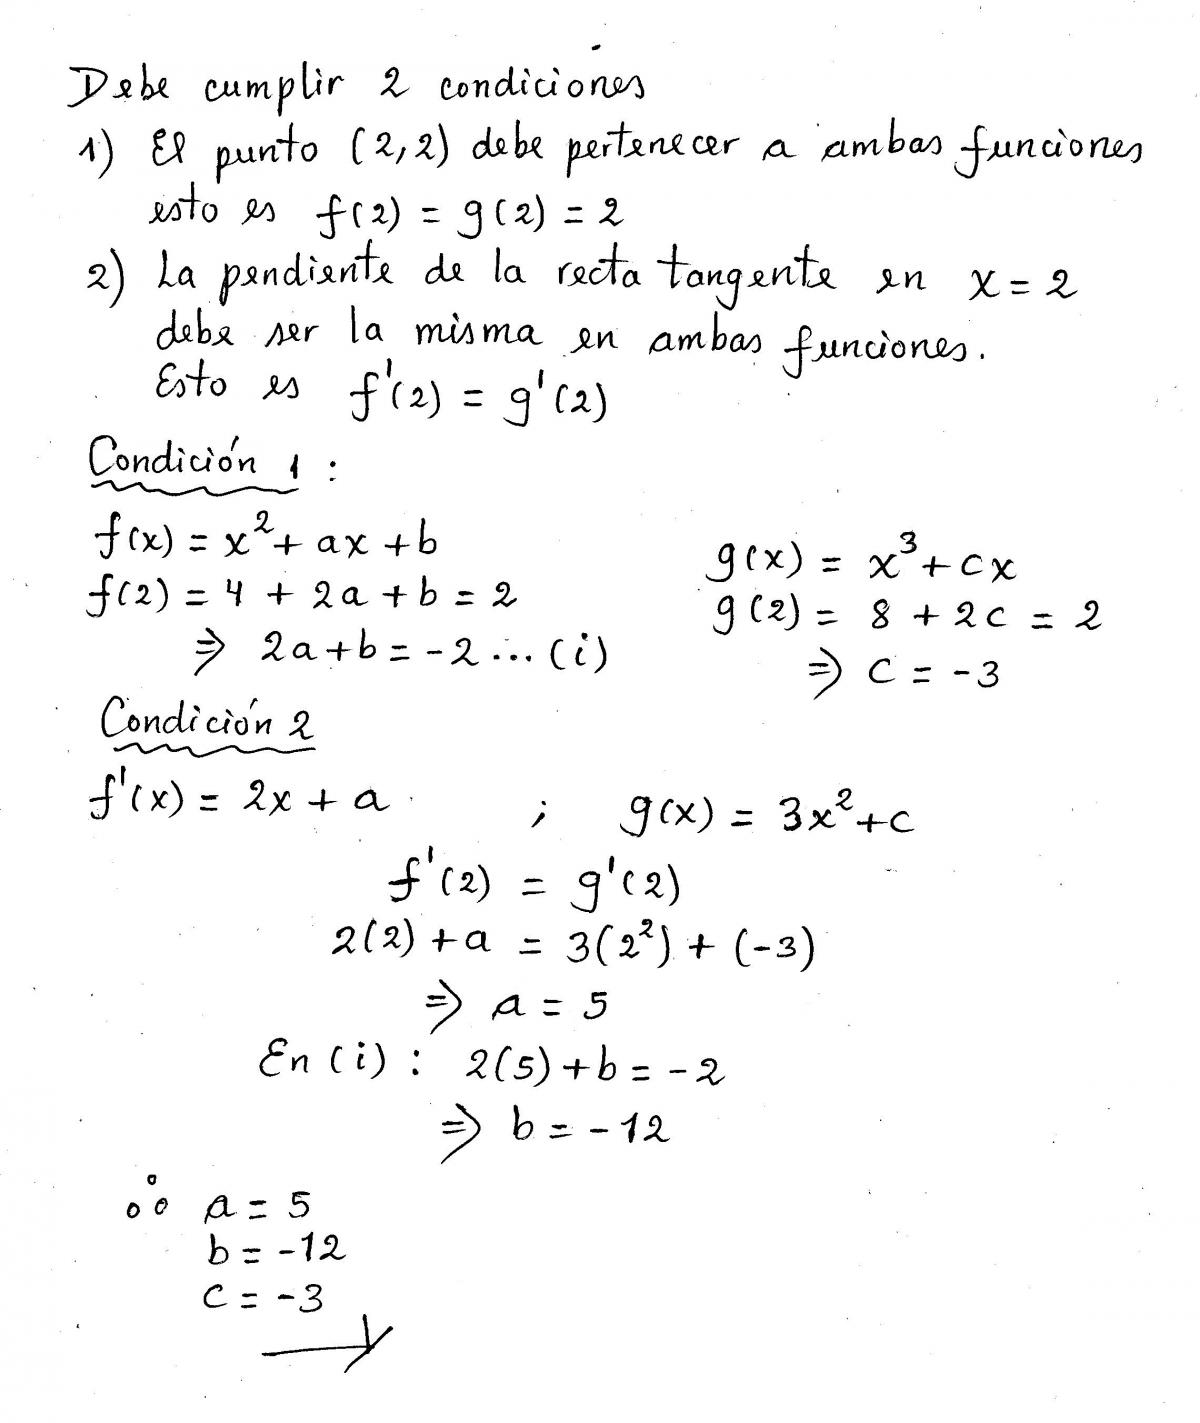 Debe cumplir 2 condiciones
1) El punto (2,2) debe pertenecer a ambas funciones
esto es f(2) = g(2) = 2
2) La pendiente de la recta tangente en x = 2
debe ser la misma en ambas funciones.
Esto es f'(2) = g'(2)
Condición 1 :
f(x) = x² + ax + b
f(2) = 4 + 2a + b = 2
⇒ 2a + b = -2 ... (i)
g(x) = x³ + cx
g(2) = 8 + 2c = 2
⇒ c = -3
Condición 2
f'(x) = 2x + a ; g(x) = 3x² + c
f'(2) = g'(2)
2(2) + a = 3(2²) + (-3)
⇒ a = 5
En (i) : 2(5) + b = -2
⇒ b = -12
∴ a = 5
b = -12
c = -3